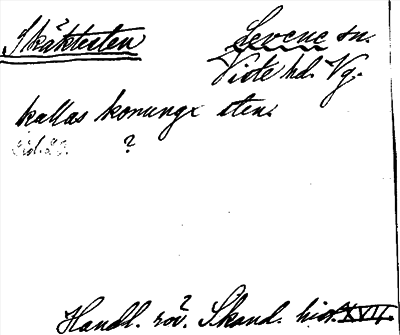 Skäktesten Levene sn.
Viste hd. Vg.
kallas konungx sten.
sid. 23. ?
Handl. röv. ? Skand. hist. XVII.